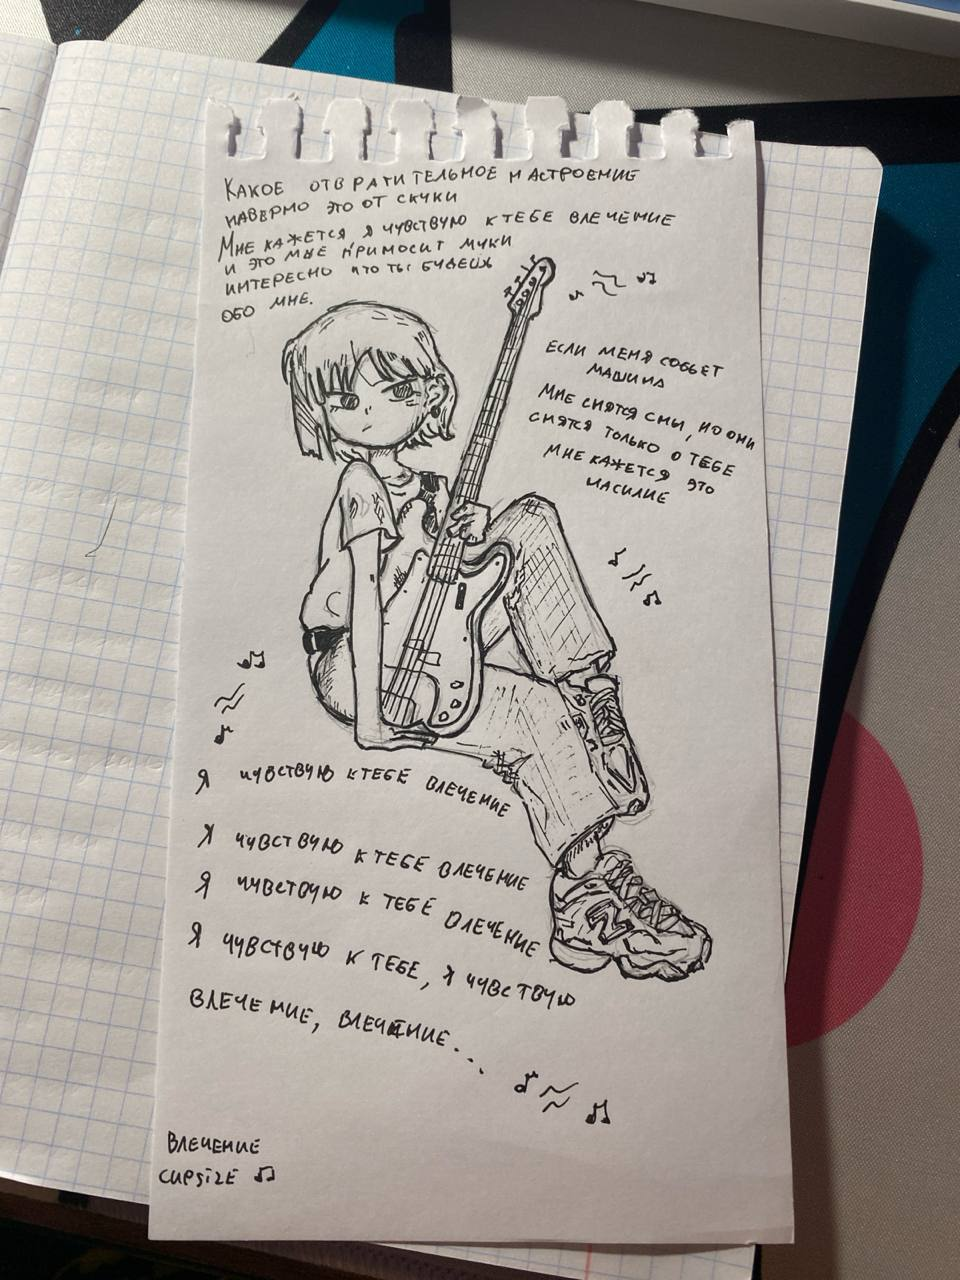 Какое отвратительное настроение
наверно это от скуки
Мне кажется я чувствую к тебе влечение
и это мне приносит муки
интересно что ты будешь
обо мне.
если меня собьет
машина
Мне снятся сны, но они
снятся только о тебе
Мне кажется это
насилие
Я чувствую к тебе влечение
Я чувствую к тебе влечение
Я чувствую к тебе влечение
Я чувствую к тебе, я чувствую
влечение, влечение...
Влечение
cupsize